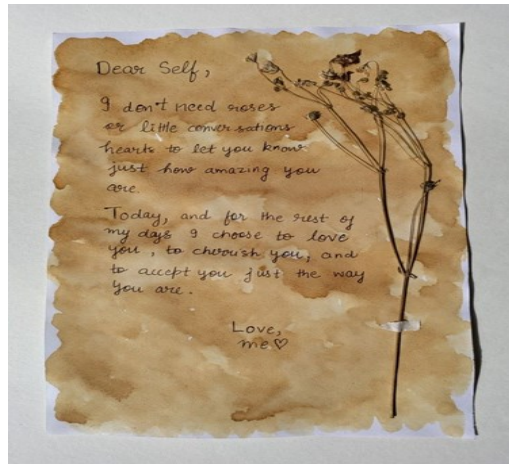 Dear Self,
I don't need roses
or little conversations
hearts to let you know
just how amazing you
are.
Today, and for the rest of
my days I choose to love
you, to cherish you, and
to accept you just the way
you are.
Love,
me♡